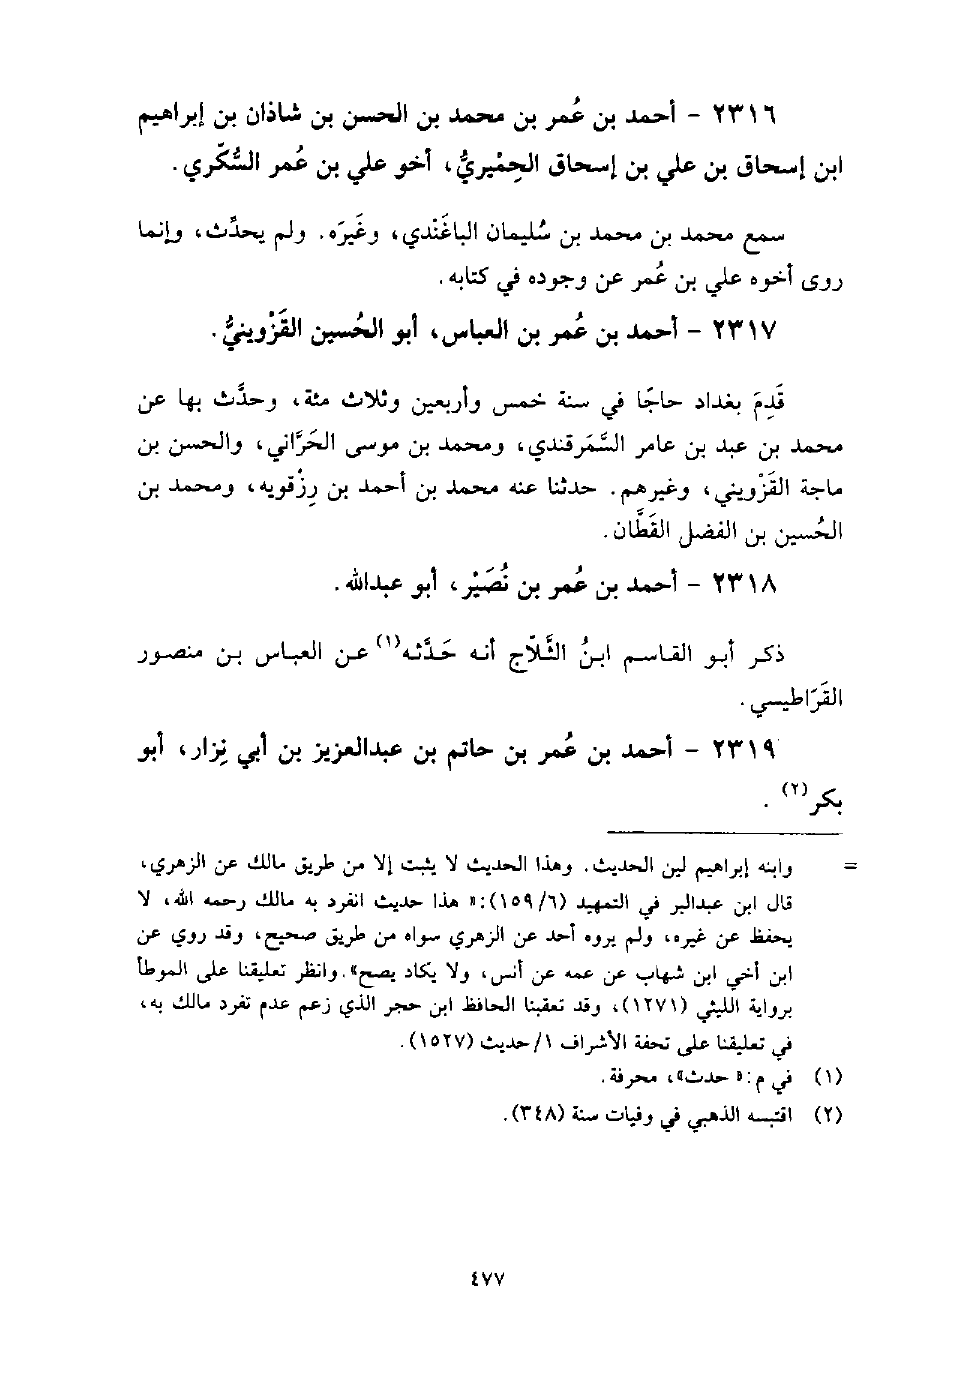 ٢٣١٦ - أحمد بن عُمر بن محمد بن الحسن بن شاذان بن إبراهيم
ابن إسحاق بن علي بن إسحاق الحِمْيريُّ، أخو علي بن عُمر السُّكّري.
سمع محمد بن محمد بن سُليمان الباغَنْدي، وغَيرَه. ولم يحدِّث، وإنما
روى أخوه علي بن عُمر عن وجوده في كتابه.
٢٣١٧ - أحمد بن عُمر بن العباس، أبو الحُسين القَزْوينيُّ.
قَدِمَ بغداد حاجًا في سنة خمس وأربعين وثلاث مئة، وحدَّث بها عن
محمد بن عبد بن عامر السَّمَرقندي، ومحمد بن موسى الحَرَّاني، والحسن بن
ماجة القَزْويني، وغيرهم. حدثنا عنه محمد بن أحمد بن رِزْقويه، ومحمد بن
الحُسين بن الفضل القَطَّان.
٢٣١٨ - أحمد بن عُمر بن نُصَيْر، أبو عبدالله.
ذكر أبو القاسم ابنُ الثَّلّاج أنه حَدَّثه(١) عن العباس بن منصور
القَرَاطيسي.
٢٣١٩ - أحمد بن عُمر بن حاتم بن عبدالعزيز بن أبي نِزار، أبو
بكر(٢).
= وابنه إبراهيم لين الحديث. وهذا الحديث لا يثبت إلا من طريق مالك عن الزهري،
قال ابن عبدالبر في التمهيد (٦/ ١٥٩): «هذا حديث انفرد به مالك رحمه الله، لا
يحفظ عن غيره، ولم يروه أحد عن الزهري سواه من طريق صحيح، وقد روي عن
ابن أخي ابن شهاب عن عمه عن أنس، ولا يكاد يصح». وانظر تعليقنا على الموطأ
برواية الليثي (١٢٧١)، وقد تعقبنا الحافظ ابن حجر الذي زعم عدم تفرد مالك به،
في تعليقنا على تحفة الأشراف ١/ حديث (١٥٢٧).
(١) في م: «حدث»، محرفة.
(٢) اقتبسه الذهبي في وفيات سنة (٣٤٨).
٤٧٧